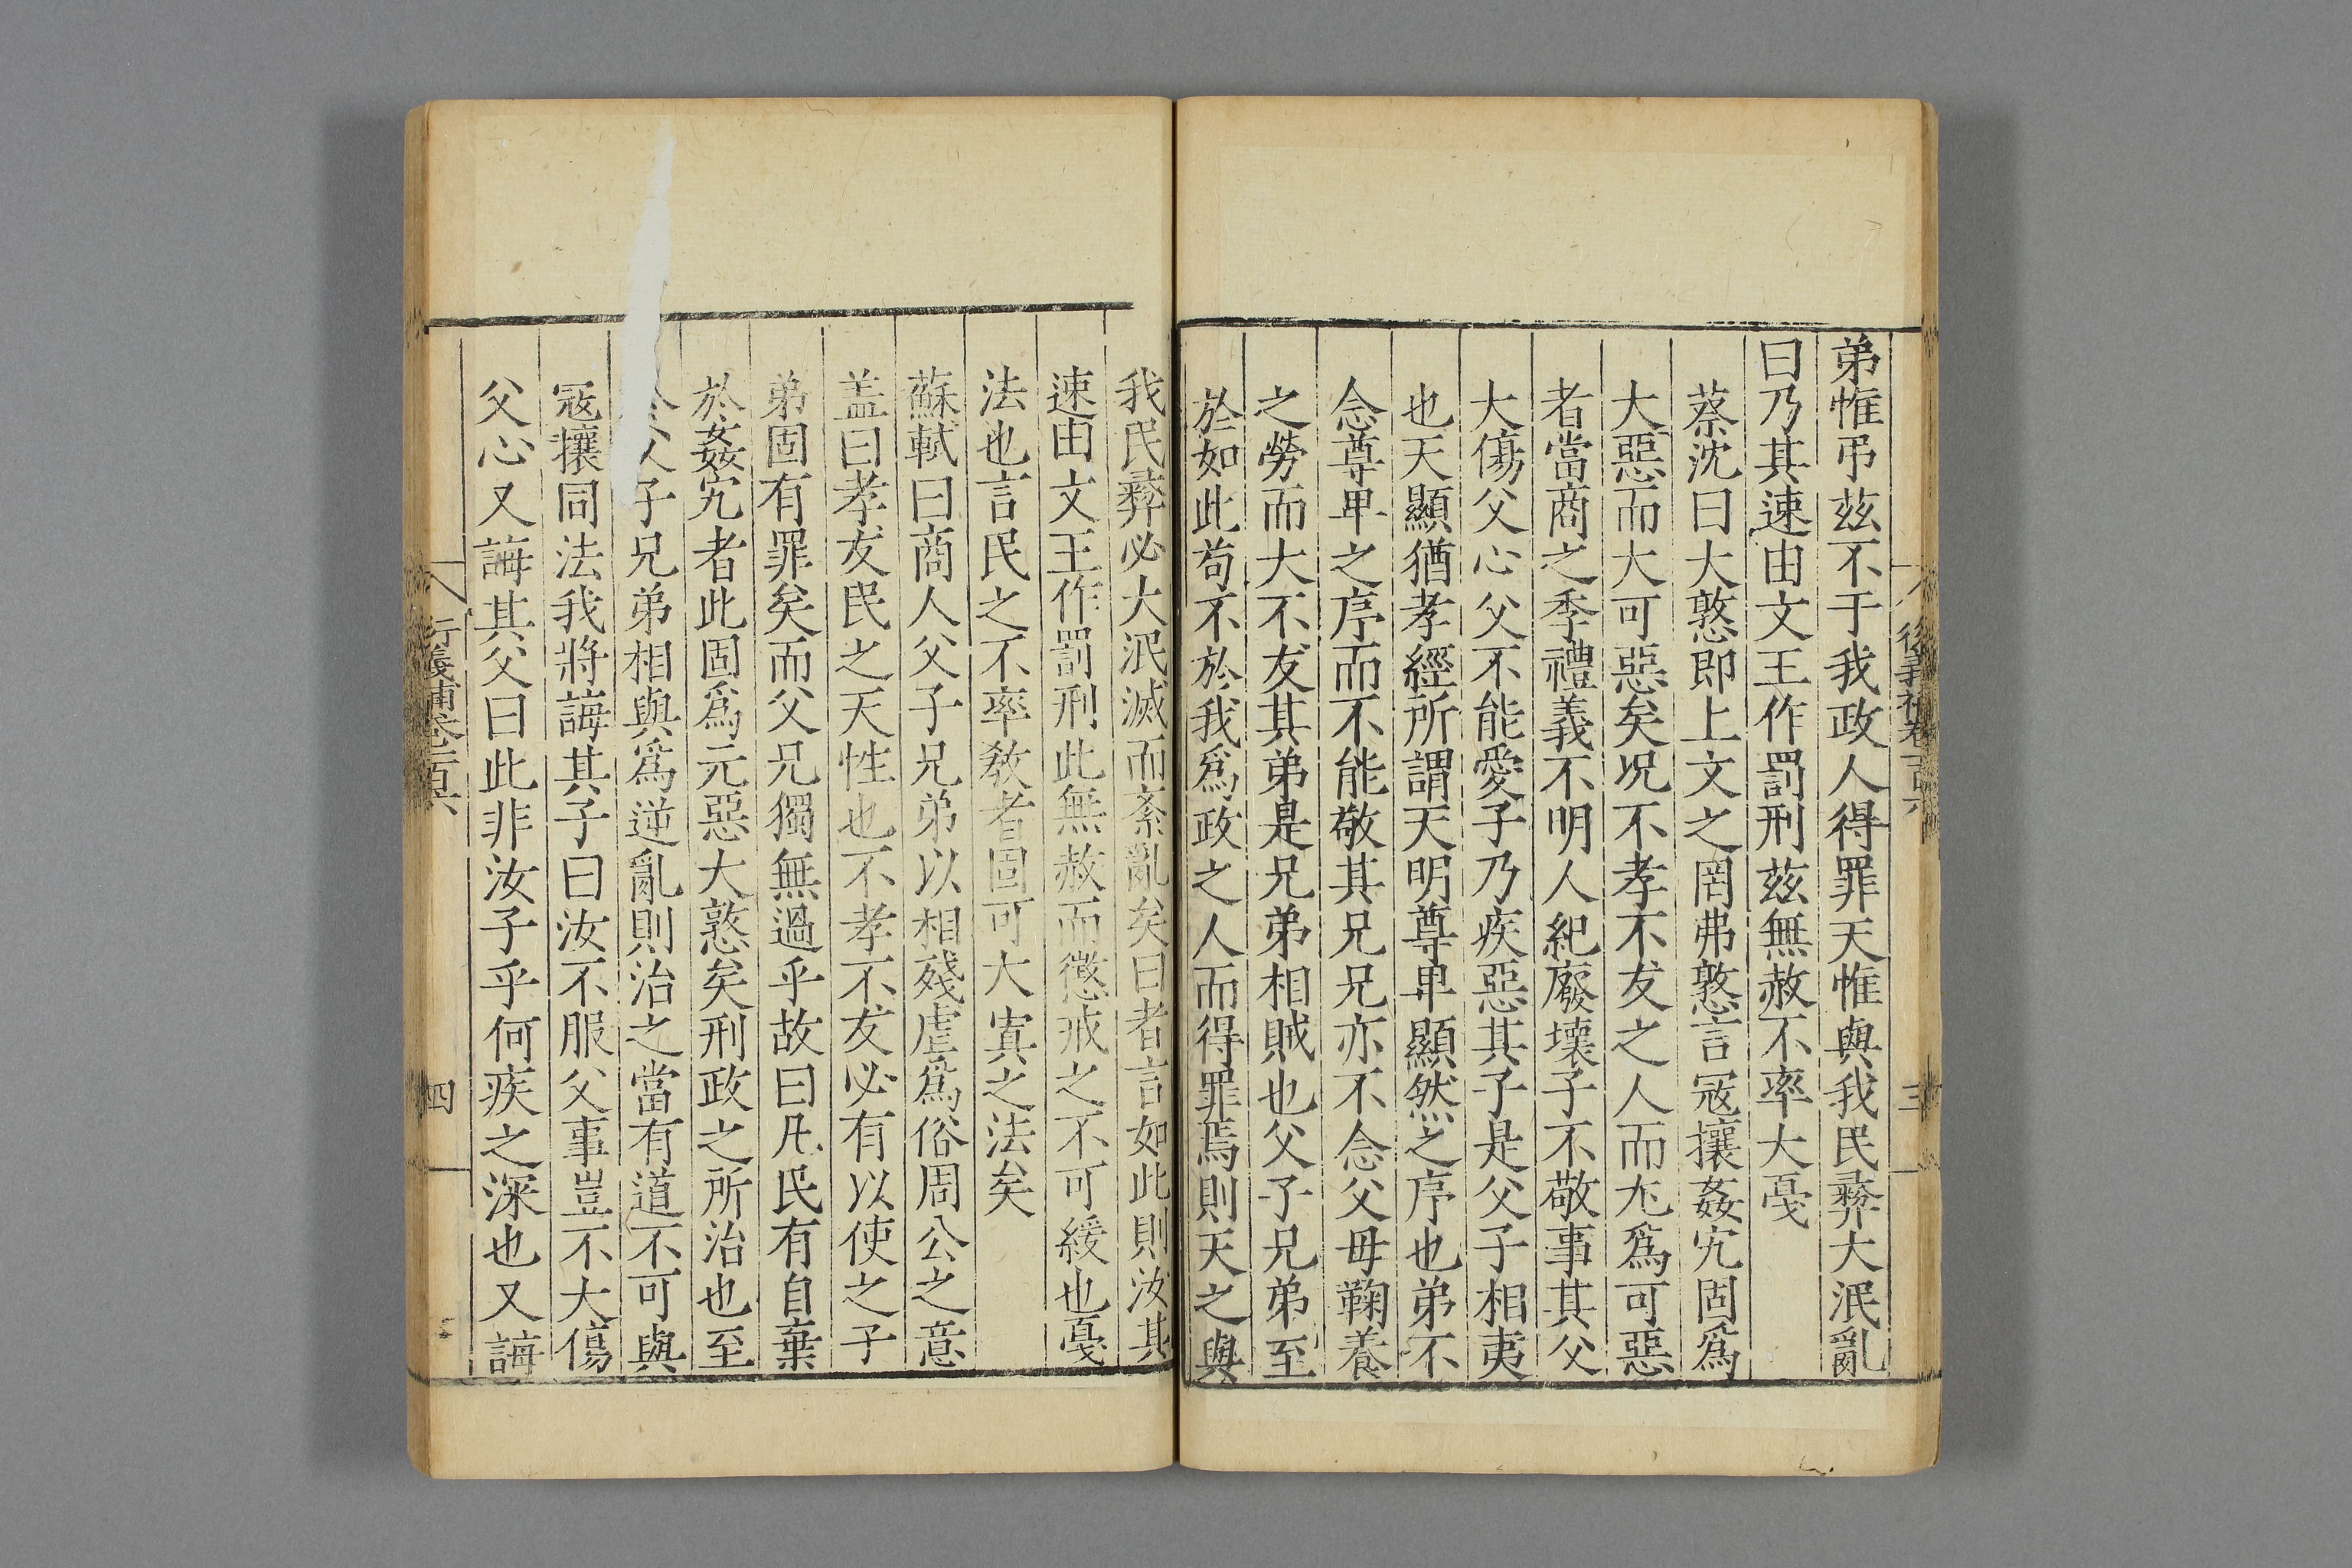 弟惟弔茲不于我政人得罪天惟與我民彛大泯亂
曰乃其速由文王作罰刑茲無赦不率大戞
蔡沈曰大憝即上文之罔弗憝言冦攘姦宄固爲
大惡而大可惡矣况不孝不友之人而尢爲可惡
者當商之季禮義不明人紀廢壞子不敬事其父
大傷父心父不能愛子乃疾惡其子是父子相夷
也天顯猶孝經所謂天明尊卑顯然之序也弟不
念尊卑之序而不能敬其兄兄亦不念父母鞠養
之勞而大不友其弟是兄弟相賊也父子兄弟至
於如此苟不於我爲政之人而得罪焉則天之與
我民彛必大泯滅而紊亂矣曰者言如此則汝其
速由文王作罰刑此無赦而懲戒之不可緩也戞
法也言民之不率敎者固可大寘之法矣
蘇軾曰商人父子兄弟以相殘虐爲俗周公之意
盖曰孝友民之天性也不孝不友必有以使之子
弟固有罪矣而父兄獨無過乎故曰凡民有自棄
於姦宄者此固爲元惡大憝矣刑政之所治也至
父子兄弟相與爲逆亂則治之當有道不可與
冦攘同法我將誨其子曰汝不服父事豈不大傷
父心又誨其父曰此非汝子乎何疾之深也又誨
衍義補卷一百六
四